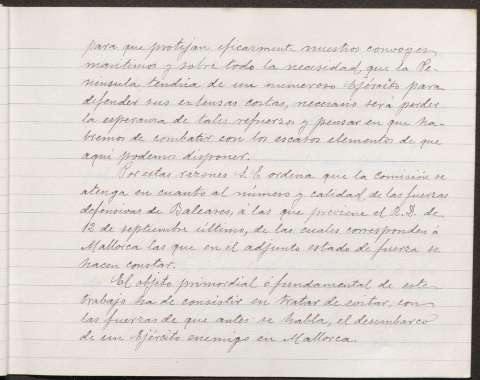 para que protijan eficasment nuestros convoyes
maritimos y sobre todo la necesidad, que la Pe-
ninsula tendria de un numeroso Ejército para
defender sus extensas costas, necesario será perder
la esperanza de tales refuerzos y pensar en que ha-
bremos de combatir con los escasos elementos de que
aqui podemos disponer.
Por estas razones S.E. ordena que la comisión se
atenga en cuanto al número y calidad de las fuerzas
defensivas de Baleares, á las que previene el R.D. de
12 de septiembre último, de las cuales corresponden á
Mallorca las que en el adjunto estado de fuerza se
hacen constar.
El objeto primordial é fundamental de este
trabajo ha de consistir en tratar de evitar, con
las fuerzas de que antes se habla, el desembarco
de un Ejército enemigo en Mallorca.